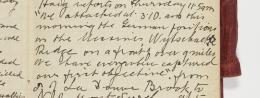 Haig reports on Thursday 11.50am
"We attacked at 3.10 am this
morning the German positions
on the Messines Wytschaete
Ridge on a front of over 9 miles
We have everywhere captured
our first objective" from
of La Douve Brook to